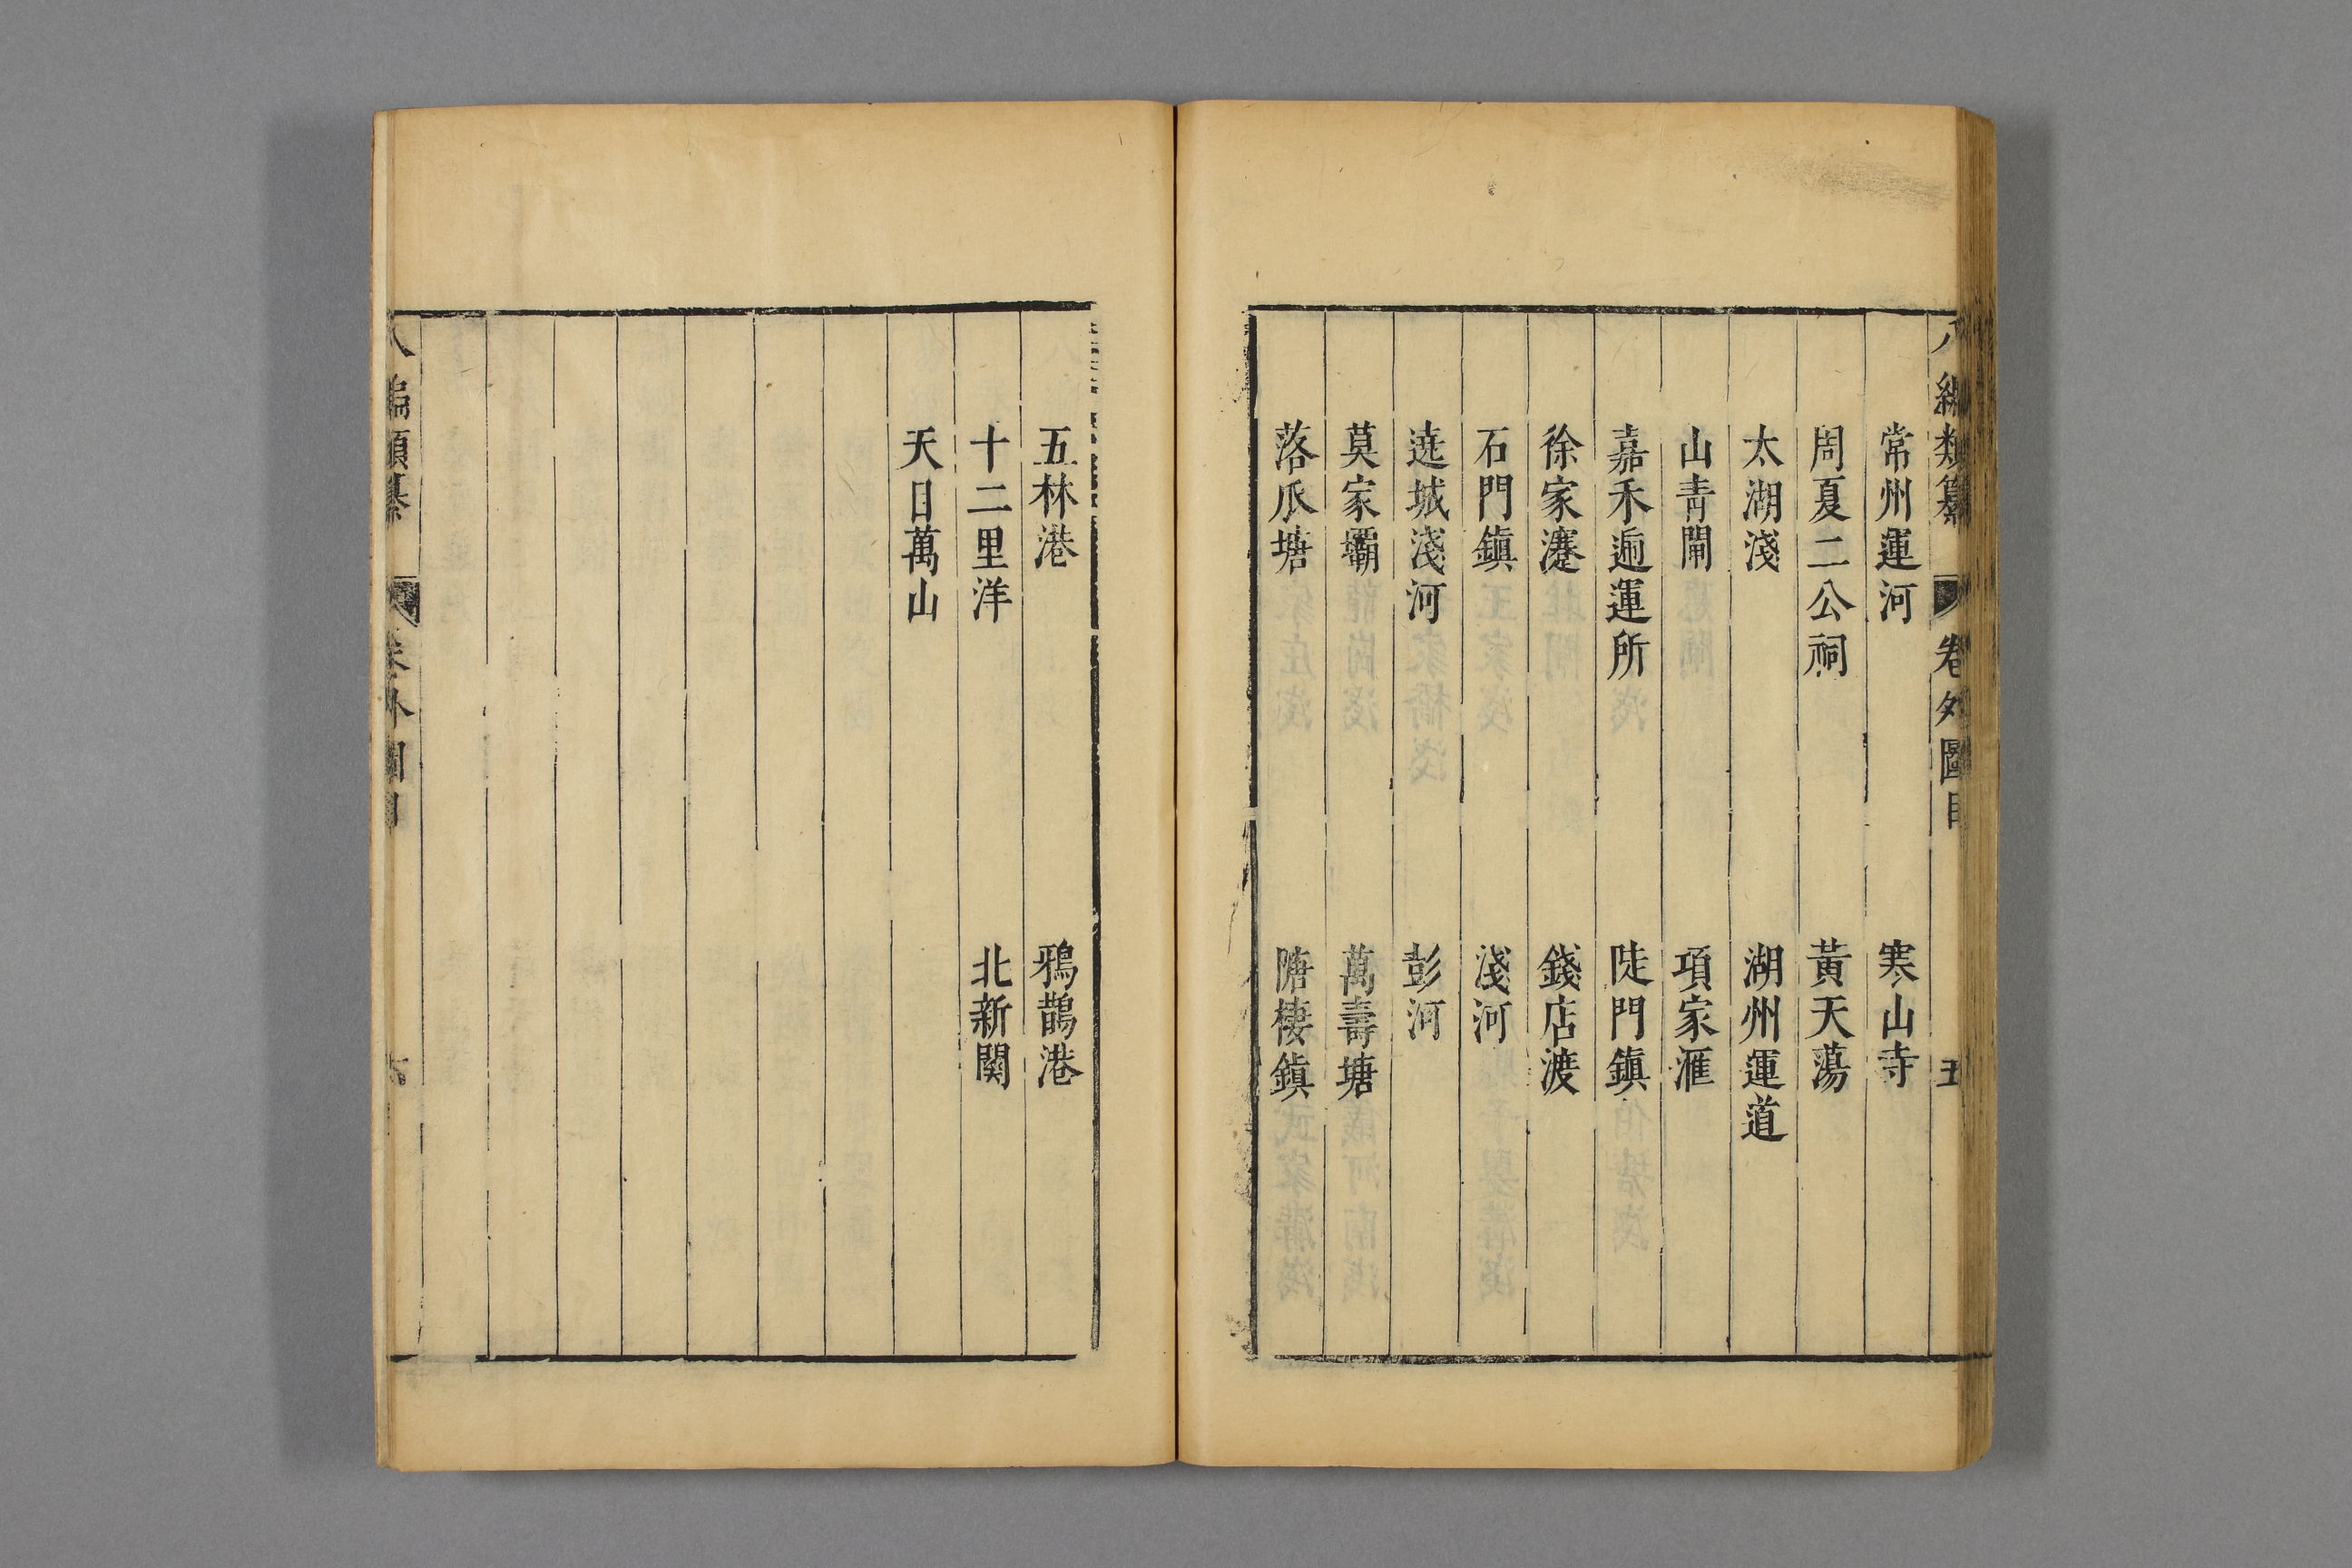 八編類纂 卷外圖目 五
常州運河 寒山寺
周夏二公祠 黃天蕩
太湖淺 湖州運道
山青閘 項家滙
嘉禾逓運所 陡門鎮
徐家㵐 錢店渡
石門鎮 淺河
遶城淺河 彭河
莫家壩 萬壽塘
落爪塘 隌棲鎮
五林港 鴉鵲港
十二里洋 北新関
天目萬山
八編類纂 卷外圖目 六